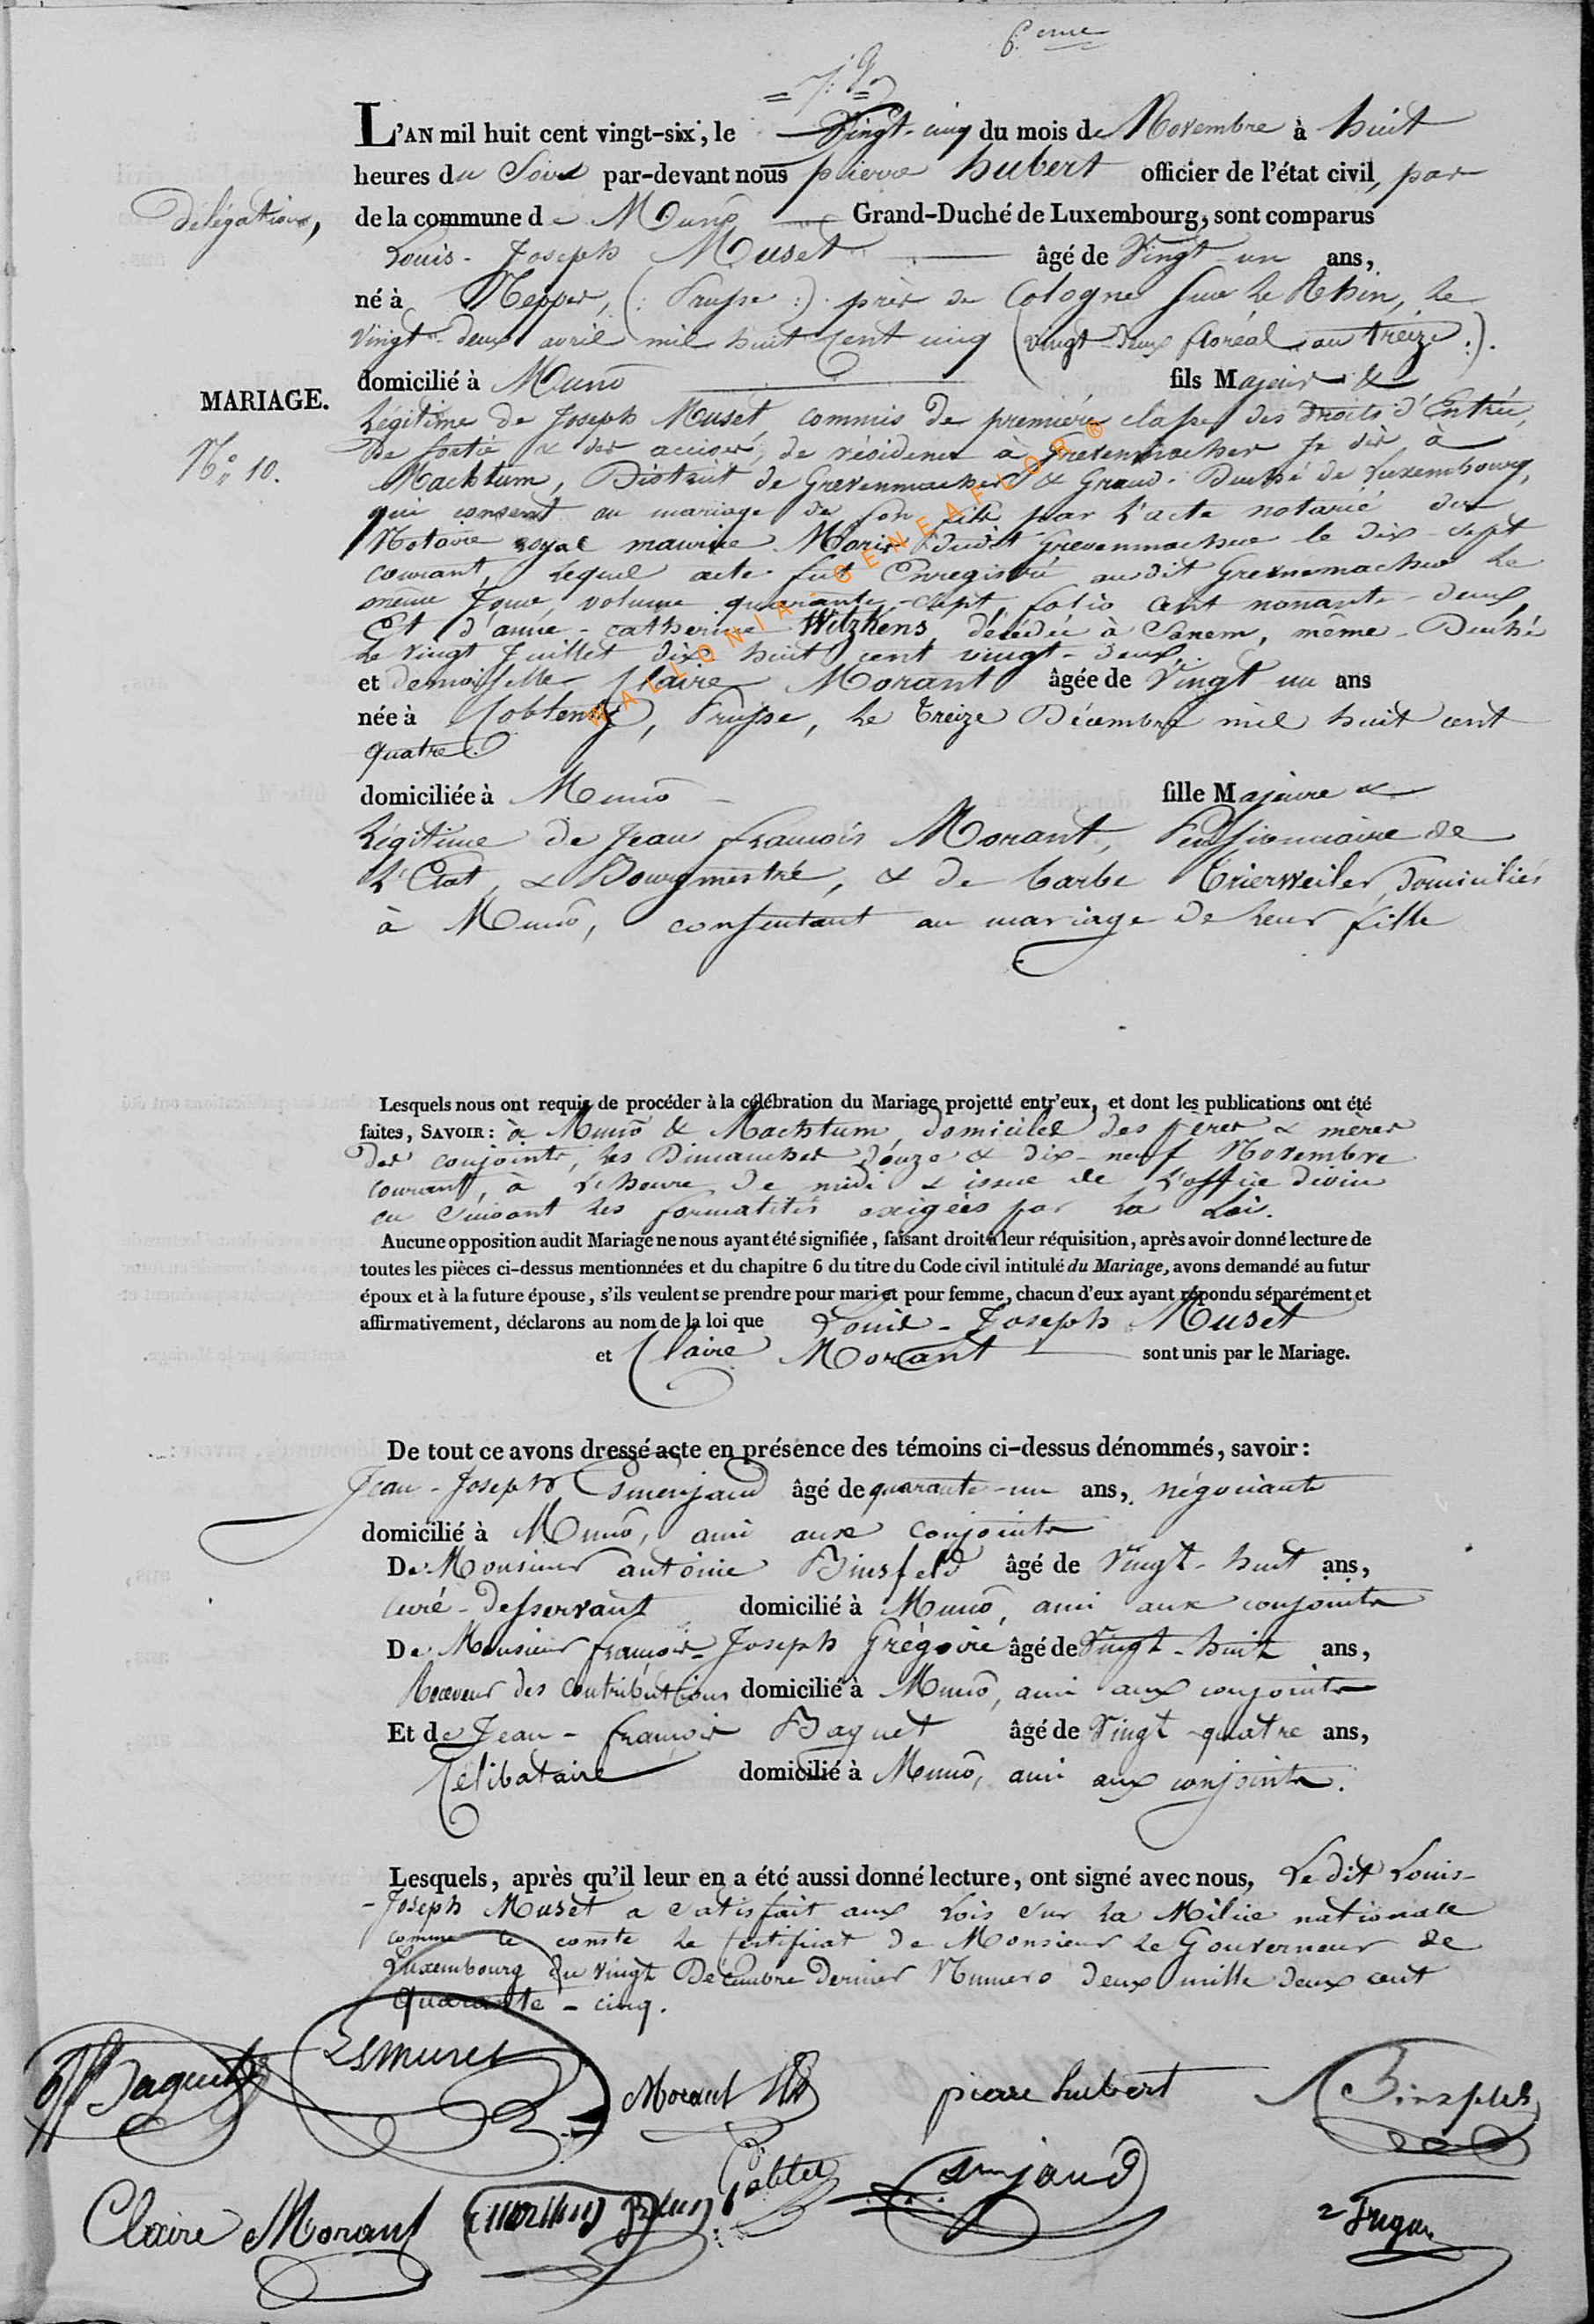 6.eme
L'AN mil huit cent vingt-six, le Vingt-cinq du mois de Novembre à huit
heures du Soir par-devant nous pierre hubert officier de l'état civil, par
délégation,
de la commune de Munô Grand-Duché de Luxembourg, sont comparus
Louis-Joseph Muset âgé de Vingt-un ans,
né à (: Prusse :) près de Cologne sur le Rhin, le
vingt-deux avril mil huit cent cinq (vingt-deux floréal an treize :).
domicilié à Munô fils Majeur &
MARIAGE.
légitime de Joseph Muset, commis de première classe des droits d'Entrée,
N.o 10.
de sortie & des accises, de résidence à Grevenmacher Je dis à
Machtum, District de Grevenmacher & Grand-Duché de Luxembourg,
qui consent au mariage de son fils par l'acte notarié du
Notaire royal maurice dudit Grevenmacher le dix-sept
courant, lequel acte fut Enregistré audit Grevenmacher le
même jour, volume quarante-sept, folio cent nonante-deux,
Et d'anne-catherine Witzkens, décédée à Sanem, même-Duché
le vingt Juillet dix-huit cent vingt-deux.
et demoiselle Claire Morant âgée de Vingt un ans
née à Coblentz, Prusse, le treize Décembre mil huit cent
quatre.
domiciliée à Munô fille Majeure &
légitime de Jean François Morant, Pensionnaire de
l'Etat, & Bourgmestre, & de barbe Trierweiler, domiciliés
à Munô, consentant au mariage de leur fille
WALLONIA-GENEAFLOR®
Lesquels nous ont requis de procéder à la célébration du Mariage projetté entr'eux, et dont les publications ont été
faites, SAVOIR: à Munô & Machtum, domiciles des pères & mères
des conjoints, les Dimanches douze & dix-neuf Novembre
courant, à l'heure de midi & issue de l'office divin
en suivant les formalités exigées par la Loi.
Aucune opposition audit Mariage ne nous ayant été signifiée, faisant droit à leur réquisition, après avoir donné lecture de
toutes les pièces ci-dessus mentionnées et du chapitre 6 du titre du Code civil intitulé du Mariage, avons demandé au futur
époux et à la future épouse, s'ils veulent se prendre pour mari et pour femme, chacun d'eux ayant répondu séparément et
affirmativement, déclarons au nom de la loi que Louis-Joseph Muset
et Claire Morant sont unis par le Mariage.
De tout ce avons dressé acte en présence des témoins ci-dessus dénommés, savoir:
Jean-Joseph âgé de quarante-un ans, négociant
domicilié à Munô, ami aux conjoints
De Monsieur antoine Binsfeld âgé de Vingt-huit ans,
curé-desservant domicilié à Munô, ami aux conjoints
De Monsieur françois-Joseph Grégoire âgé de Vingt-huit ans,
Receveur des Contributions domicilié à Munô, ami aux conjoints
Et de Jean-françois Baguet âgé de Vingt-quatre ans,
Célibataire domicilié à Munô, ami aux conjoints.
Lesquels, après qu'il leur en a été aussi donné lecture, ont signé avec nous, Le dit Louis-
-Joseph Muset a satisfait aux Lois sur la Milice nationale
comme le conste le certificat de Monsieur le Gouverneur de
Luxembourg du vingt Décembre dernier Numero deux mille deux cent
quarante-cinq.
Baguet LJMuset Morant pierre hubert Binsfeld
Claire Morant